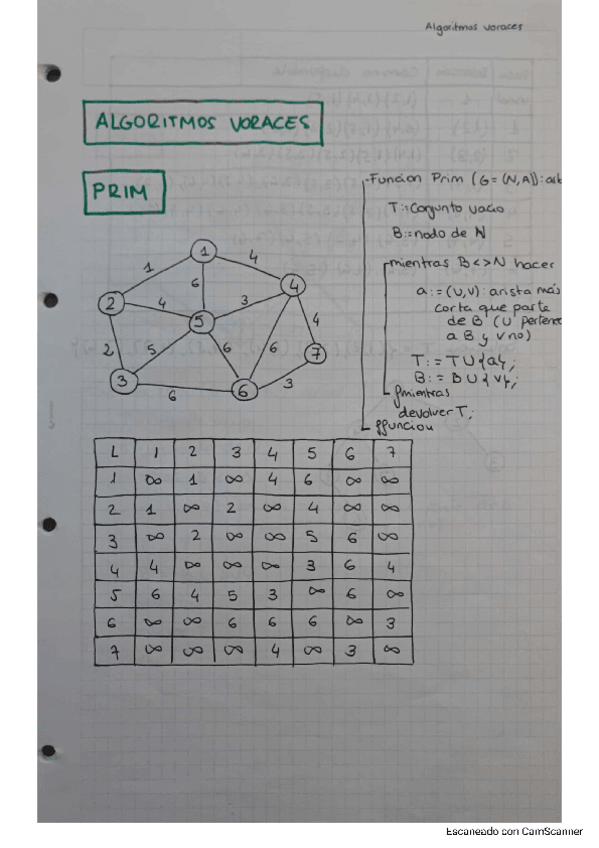 Algoritmos voraces
ALGORITMOS VORACES
PRIM
Funcion Prim (G = (N,A)): arb
T:=Conjunto vacio
B:=nodo de N
mientras B<>N hacer
a:=(U,V): arista más
corta que parte
de B (U pertene
a B y V no)
T:= T U {a};
B:= B U {v};
fmientras
devolver T;
ffuncion
1
1
4
6
2
4
4
3
5
4
2
5
6
6
7
3
6
6
3
L 1 2 3 4 5 6 7
1 ∞ 1 ∞ 4 6 ∞ ∞
2 1 ∞ 2 ∞ 4 ∞ ∞
3 ∞ 2 ∞ ∞ 5 6 ∞
4 4 ∞ ∞ ∞ 3 6 4
5 6 4 5 3 ∞ 6 ∞
6 ∞ ∞ 6 6 6 ∞ 3
7 ∞ ∞ ∞ 4 ∞ 3 ∞
Escaneado con CamScanner